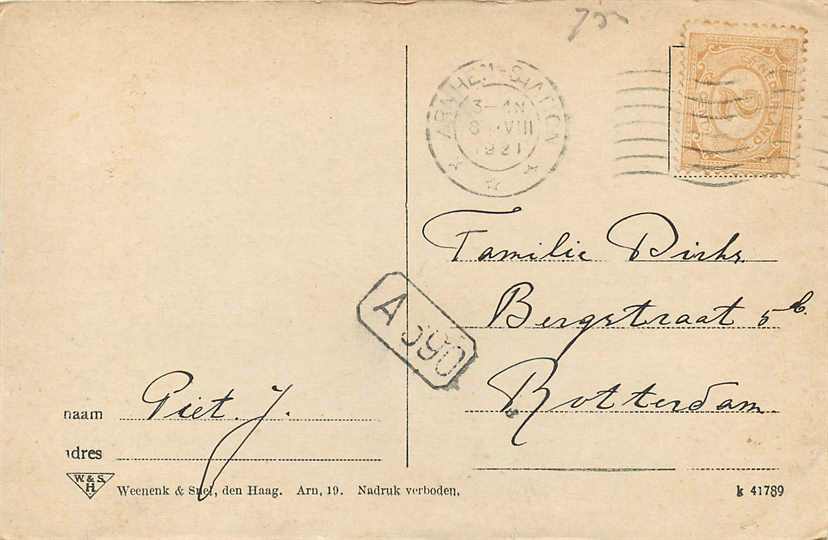 ARNHEM-STATION
3-4N
8 VIII
1921
NEDERLAND
Familie Dirks
Bergstraat 5b.
Rotterdam
A 390
naam Piet. J.
adres
W.&S.
H.
Weenenk & Snel, den Haag. Arn, 19. Nadruk verboden.
k 41789